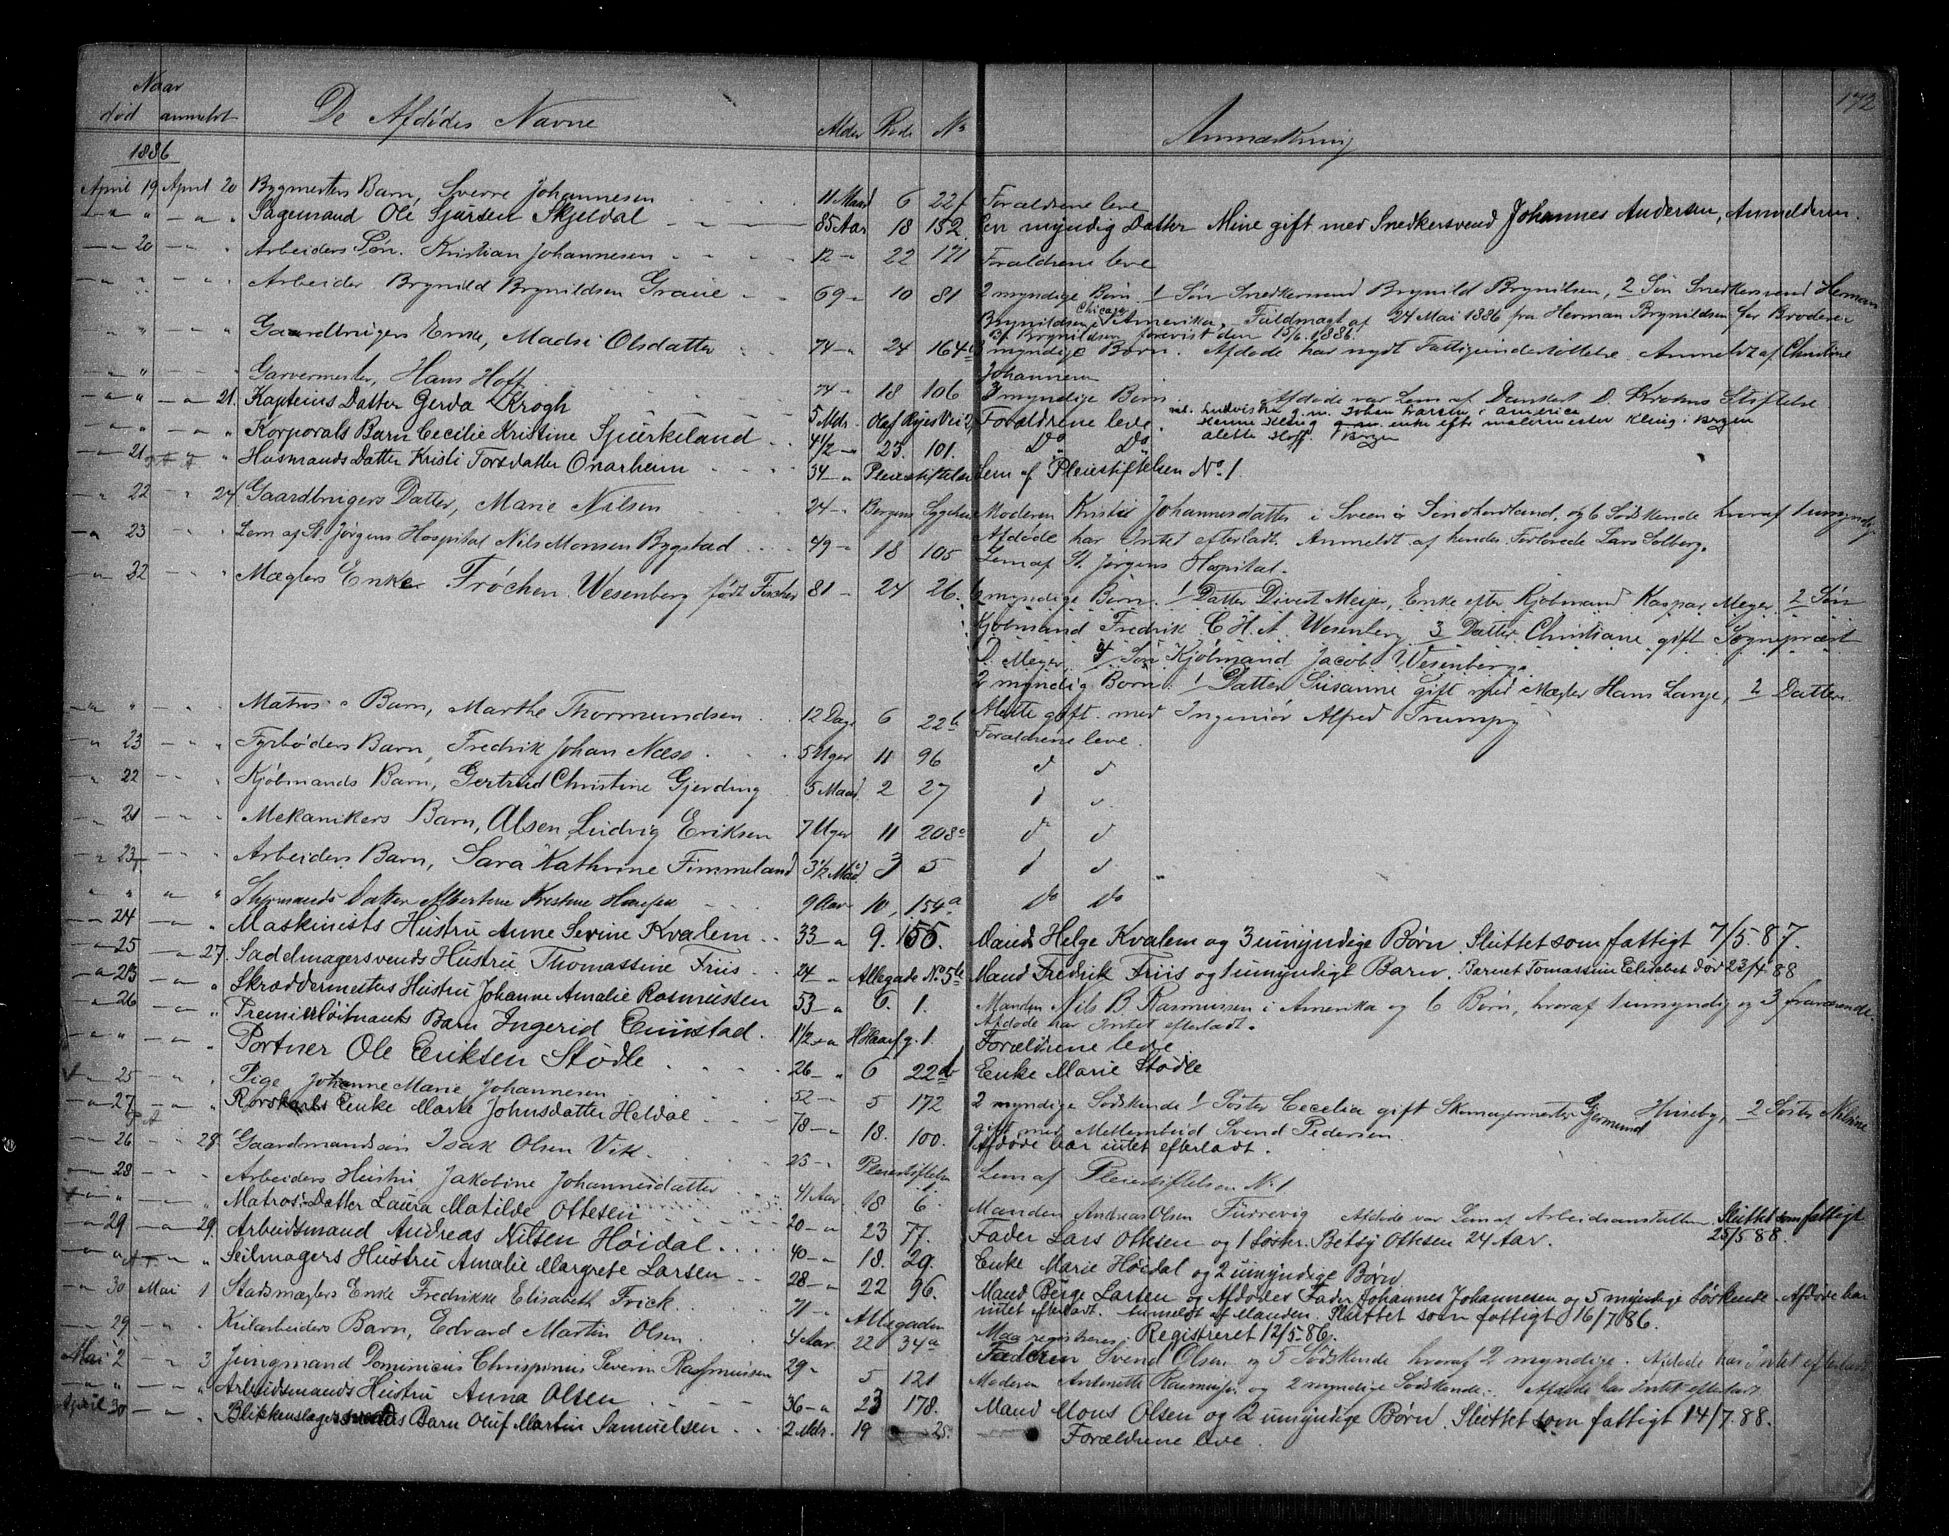 172
Naar
død anmeldt De Afdødes Navne Alder Rode No Anmærkning
1886
April 19 April 20 Bygmesters Barn, Sverre Johannesen 11 Maad 6 22 f Forældrene leve
" " Sagemand Ole Sjursen Skjeldal 85 Aar 18 152. En myndig Datter Mine gift med Snedkersvend Johannes Andersen, Anmelderen.
20 " Arbeiders Søn. Kristian Johannesen 12 " 22 171 Forældrene leve
" " Arbeider Brynild Brynildsen Graue 69 " 10 81 2 myndige Børn. 1 Søn Snedkersvend Brynild Brynilsen, 2 Søn Snedkersvend Herman
Brynildsen i Chicago Amerika, Fuldmagt af 24 Mai 1886 fra Herman Brynildsen for Broderen
Brynildsen forevist den 15/6 1886.
" " Gaardbrugers Enke, Madsi Olsdatter 74 " 24 164 myndige Børn. Afdøde har nydt Fattigunderstøttelse. Anmeldt af Christine
Johannesen
" " Garvermester, Hans Hoff 74 " 18 106 3 myndige Børn. Afdøde var Lem af Danckert D. Krohns Stiftelse
g. m. Johan Larsen i America
enke eft malermester Kling. Bergen
Alette Hoff. Bergen
" 21. Kapteins Datter Gerda Krogh 5 Mdr. Olaf Ryes Vei Forældrene leve.
" " Korporals Barn Cecilie Kristine Spurkeland 4 1/2 " 23. 101. Do Do
21 " Husmands Datter Kristi Torsdatter Onarheim 34 " Pleiestiftelse Lem af Pleiestiftelsen No 1.
22 24 Gaardbrugers Datter, Marie Nilsen 24 " Bergens Sygehus Moderen Kristi Johannesdatter i Sveen i Søndhordland, og 6 Sødskende hvoraf 1 umyndig
Afdøde har Intet efterladt. Anmeldt af hendes Forlovede Lars Solberg.
23 " Lem af St. Jørgens Hospital Nils Monsen Bygstad 49 " 18 105 Lem af St. Jørgens Hospital.
22 " Mæglers Enke Frøchen Wesenberg født Fischer 81 " 24 26. 6 myndige Børn. 1 Datter Divert Meyer, Enke efter Kjøbmand Kaspar Meyer. 2 Søn
Kjøbmand Fredrik C. H. A. Wesenberg. 3 Datter Christiane gift Sogneprest
D. Meyer. 4 Søn Kjøbmand Jacob Wesenberg.
2 myndig Børn. 1 Datter Susanne gift med Mægler Hans Lange, 2 Datter
Alette gift med Ingeniør Alfred Trumpy
" " Matros Barn, Marthe Thormundsen 12 Dage 6 22 b Forældrene leve.
23 " Fyrbøders Barn, Fredrik Johan Næss 5 Uger 11 96 d d
22 " Kjøbmands Barn, Gertrud Christine Gjerding 5 Maad 2 27 d d
21 " Mekanikers Barn, Alsen Ludvig Eriksen 7 Uger 11 208 a d d
23 " Arbeiders Barn, Sara Kathrine Fimmeland 3 1/2 Maad 3 5 d d
" " " Styrmands Datter Albertine Kristine Hansen 9 Aar 10, 154 a Do Do
24 " Maskinists Hustru Anne Sevine Kvalem 33 " 9. 155. Mand Helge Kvalem og 3 umyndige Børn. Sluttet som fattigt 7/5. 87.
25 27. Sadelmagersvends Hustru Thomassine Friis 24 " Allegade No. 5 b Mand Fredrik Friis og 1 umyndigt Barn. Barnet Tomassine Elisabet død 23/4 88
23 " Skræddermesters Hustru Johanne Amalie Rasmussen 53 " 6. 1. Manden Nils B. Rasmussen i Amerika og 6 Børn, hvoraf 1 umyndig og 3 fraværende.
Afdøde har Intet efterladt.
26 " Premierløitnants Barn Ingerid Ennstad 1 1/2 " H Haarfg. 1. Forældrene leve
" " Portner Ole Eriksen Stødle 26 " 6 22 Enke Marie Stødle
25 " Pige Johanne Marie Johannesen 52 " 5 172 2 myndige Sødskende 1 Søster Cecelia gift Skomagermester Gjermund Huseby, 2 Søster Nilsine
gift med Mellembud Svend Pedersen.
27 " Rorskarls Enke Marie Johnsdatter Heldal 78 " 18. 100. Afdøde har intet efterladt.
26 28 Gaardmandssøn Isak Olsen Vik 23 " Pleiestiftelsen 1. Lem af Pleiestiftelsen No 1
28 " Arbeiders Hustru Jakobine Johannesdatter 41 Aar 18 6. Manden Andreas Olsen Furrevig Afdøde var Lem af Arbeidsanstalten Sluttet som fattigt
25/5 88.
" " Matros Datter Laura Matilde Ottesen 20 " 23 77. Fader Lars Ottesen og 1 Søster Betsy Ottesen 24 Aar.
29 29. Arbeidsmand Andreas Nilsen Høidal 40 " 18. 29. Enke Marie Høidal og 2 umyndige Børn
" " Seilmagers Hustru Amalie Margrete Larsen 28 " 22 96. Mand Børge Larsen og Afdødes Fader Johannes Johannesen og 5 myndige Sørkende. Afdøde har
intet efterladt. Anmeldt af Manden. Sluttet som fattigt 16/7 86.
30 Mai 1 Stadsmæglers Enke Fredrikke Elisabeth Frick. 71 " Allegaden Maa registreres. Registreret 12/5 86.
29 " Kularbeiders Barn, Edvard Martin Olsen 4 Aar 22 34 a Faderen Svend Olsen og 5 Sødskende hvoraf 2 myndige. Afdøde har Intet efterladt
Mai 2 3 Jungmand Dominicus Chrispinus Severin Rasmussen 29 " 5 121 Moderen Antonette Rasmussen og 2 myndige Sødskende. Afdøde har Intet efterladt
" " Arbeidsmands Hustru Anna Olsen 36 " 23 178. Mand Mons Olsen og 2 umyndige Børn. Sluttet som fattigt 14/7. 88.
April 30 " Blikkenslagersvends Barn Oluf Martin Samuelsen 2 Mdr. 19 25. Forældrene leve.